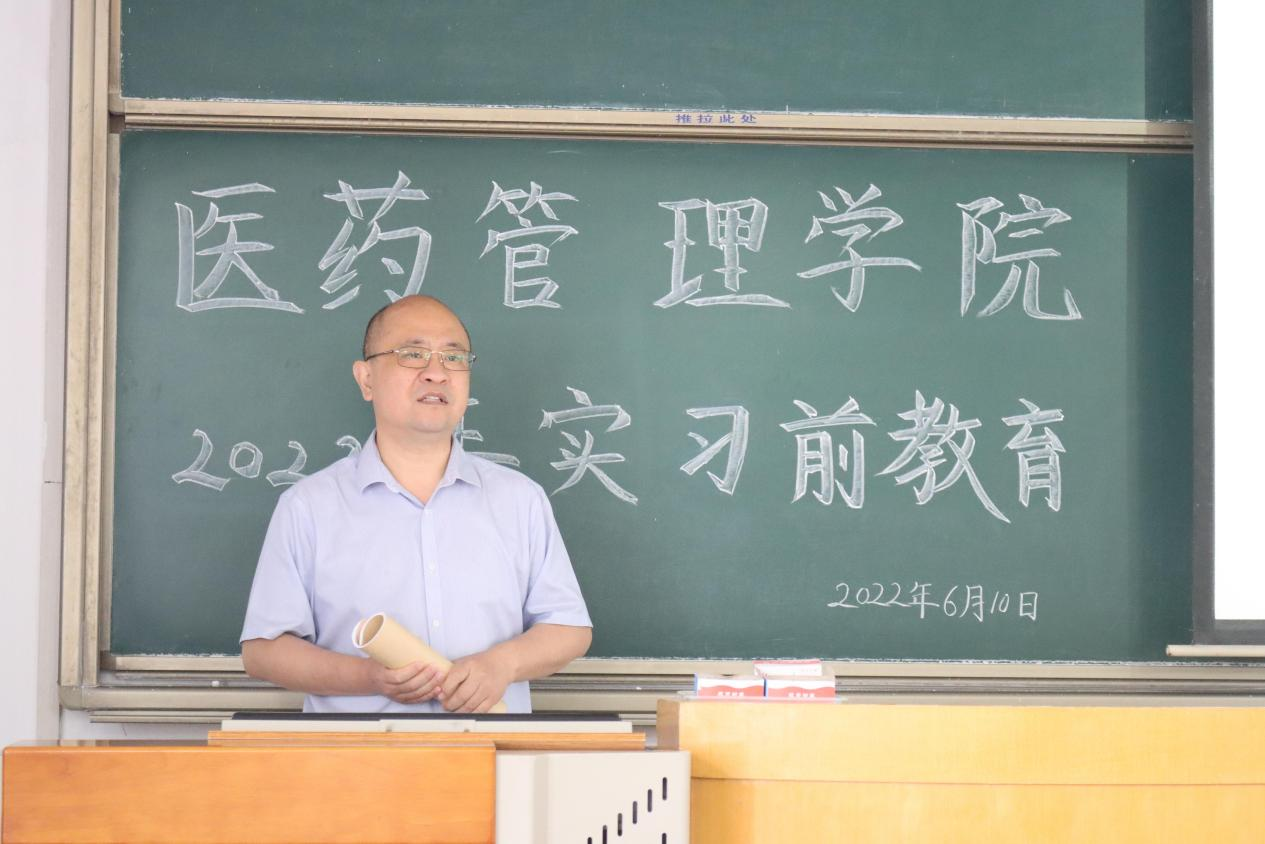 推拉此处
医药管理学院
2022年实习前教育
2022年6月10日